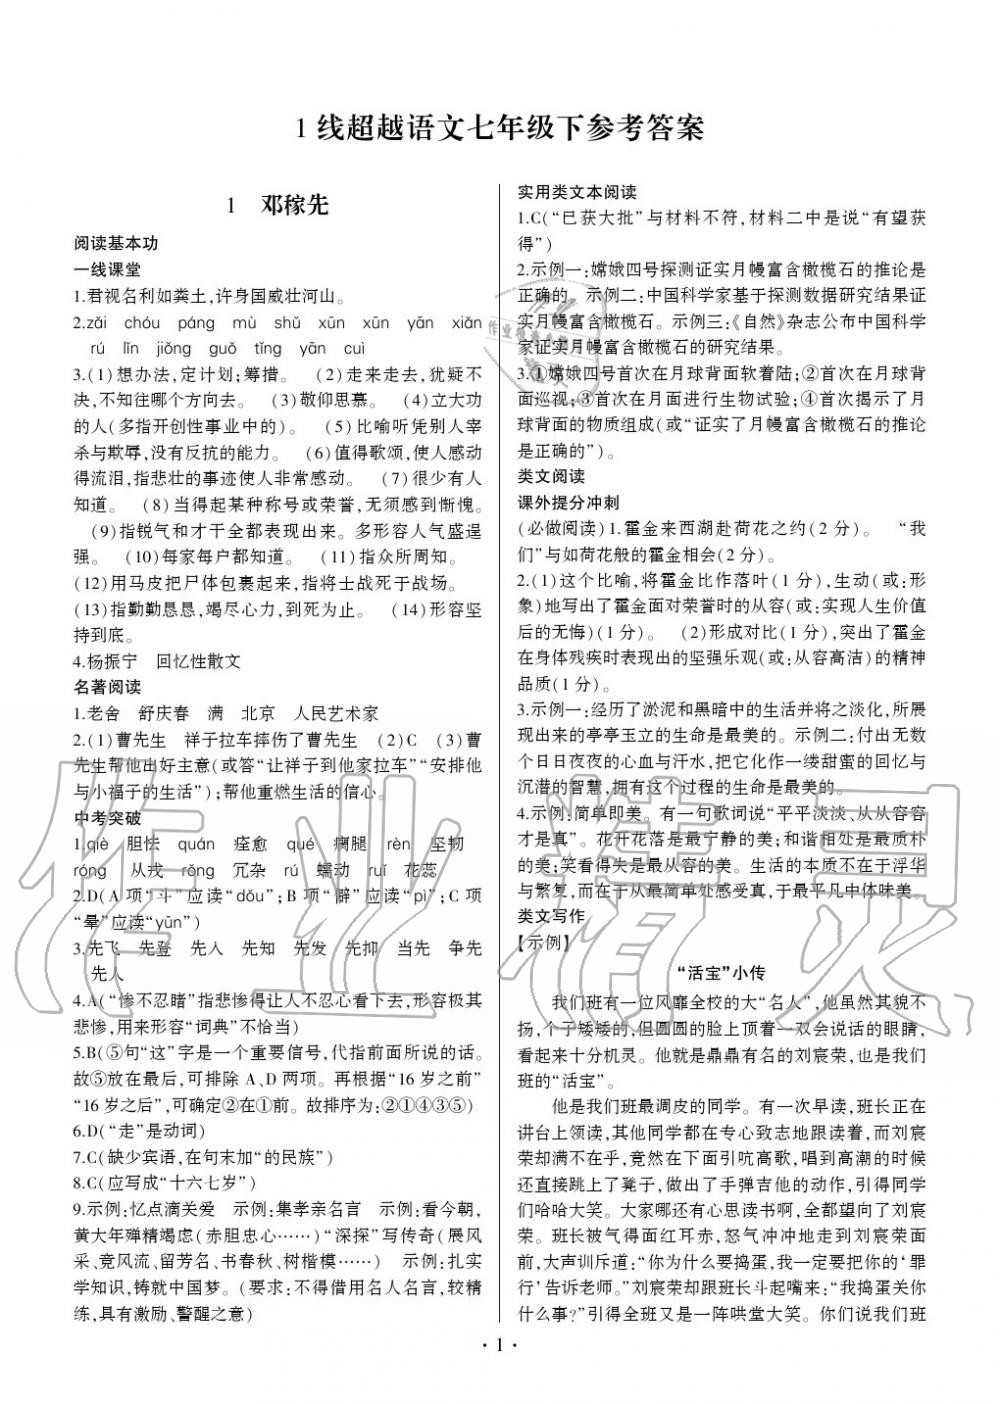 1线超越语文七年级下参考答案
1 邓稼先
阅读基本功
一线课堂
1.君视名利如粪土,许身国威壮河山。
2.zǎi chóu páng mù shǔ xūn xūn yān xiǎn
rú lǐn jiǒng guǒ tǐng yān cuì
3.(1)想办法,定计划;筹措。 (2)走来走去,犹疑不
决,不知往哪个方向去。 (3)敬仰思慕。 (4)立大功
的人(多指开创性事业中的)。 (5)比喻听凭别人宰
杀与欺辱,没有反抗的能力。 (6)值得歌颂,使人感动
得流泪,指悲壮的事迹使人非常感动。 (7)很少有人
知道。 (8)当得起某种称号或荣誉,无须感到惭愧。
(9)指锐气和才干全都表现出来。多形容人气盛逞
强。 (10)每家每户都知道。 (11)指众所周知。
(12)用马皮把尸体包裹起来,指将士战死于战场。
(13)指勤勤恳恳,竭尽心力,到死为止。 (14)形容坚
持到底。
4.杨振宁 回忆性散文
名著阅读
1.老舍 舒庆春 满 北京 人民艺术家
2.(1)曹先生 祥子拉车摔伤了曹先生 (2)C (3)曹
先生帮他出好主意(或答“让祥子到他家拉车”“安排他
与小福子的生活”);帮他重燃生活的信心。
中考突破
1.qiè 胆怯 quán 痊愈 qué 瘸腿 rèn 坚韧
róng 从戎 rǒng 冗杂 rú 蠕动 ruǐ 花蕊
2.D(A项“斗”应读“dǒu”;B项“辟”应读“pì”;C项
“晕”应读“yūn”)
3.先飞 先登 先人 先知 先发 先抑 当先 争先
先人
4.A(“惨不忍睹”指悲惨得让人不忍心看下去,形容极其
悲惨,用来形容“词典”不恰当)
5.B(⑤句“这”字是一个重要信号,代指前面所说的话。
故⑤放在最后,可排除A、D两项。再根据“16岁之前”
“16岁之后”,可确定②在①前。故排序为:②①④③⑤)
6.D(“走”是动词)
7.C(缺少宾语,在句末加“的民族”)
8.C(应写成“十六七岁”)
9.示例:忆点滴关爱 示例:集孝亲名言 示例:看今朝,
黄大年殚精竭虑(赤胆忠心……)“深探”写传奇(展风
采、竞风流、留芳名、书春秋、树楷模……) 示例:扎实
学知识,铸就中国梦。(要求:不得借用名人名言,较精
练,具有激励、警醒之意)
实用类文本阅读
1.C(“已获大批”与材料不符,材料二中是说“有望获
得”)
2.示例一:嫦娥四号探测证实月幔富含橄榄石的推论是
正确的。示例二:中国科学家基于探测数据研究结果证
实月幔富含橄榄石。示例三:《自然》杂志公布中国科学
家证实月幔富含橄榄石的研究结果。
3.①嫦娥四号首次在月球背面软着陆;②首次在月球背
面巡视;③首次在月面进行生物试验;④首次揭示了月
球背面的物质组成(或“证实了月幔富含橄榄石的推论
是正确的”)。
类文阅读
课外提分冲刺
(必做阅读)1.霍金来西湖赴荷花之约(2分)。 “我
们”与如荷花般的霍金相会(2分)。
2.(1)这个比喻,将霍金比作落叶(1分),生动(或:形
象)地写出了霍金面对荣誉时的从容(或:实现人生价值
后的无悔)(1分)。 (2)形成对比(1分),突出了霍金
在身体残疾时表现出的坚强乐观(或:从容高洁)的精神
品质(1分)。
3.示例一:经历了淤泥和黑暗中的生活并将之淡化,所展
现出来的亭亭玉立的生命是最美的。示例二:付出无数
个日日夜夜的心血与汗水,把它化作一缕甜蜜的回忆与
沉潜的智慧,拥有这个过程的生命是最美的。
4.示例:简单即美。有一句歌词说“平平淡淡、从从容容
才是真”。花开花落是最宁静的美;和谐相处是最质朴
的美;笑看得失是最从容的美。生活的本质不在于浮华
与繁复,而在于从最简单处感受真,于最平凡中体味美。
类文写作
【示例】
“活宝”小传
我们班有一位风靡全校的大“名人”,他虽然其貌不
扬,个子矮矮的,但圆圆的脸上顶着一双会说话的眼睛,
看起来十分机灵。他就是鼎鼎有名的刘宸荣,也是我们
班的“活宝”。
他是我们班最调皮的同学。有一次早读,班长正在
讲台上领读,其他同学都在专心致志地跟读着,而刘宸
荣却满不在乎,竟然在下面引吭高歌,唱到高潮的时候
还直接跳上了凳子,做出了手弹吉他的动作,引得同学
们哈哈大笑。大家哪还有心思读书啊,全都望向了刘宸
荣。班长被气得面红耳赤,怒气冲冲地走到刘宸荣面
前,大声训斥道:“你为什么要捣蛋,我一定要把你的‘罪
行’告诉老师。”刘宸荣却跟班长斗起嘴来:“我捣蛋关你
什么事?”引得全班又是一阵哄堂大笑。你们说我们班
·1·
作业精灵